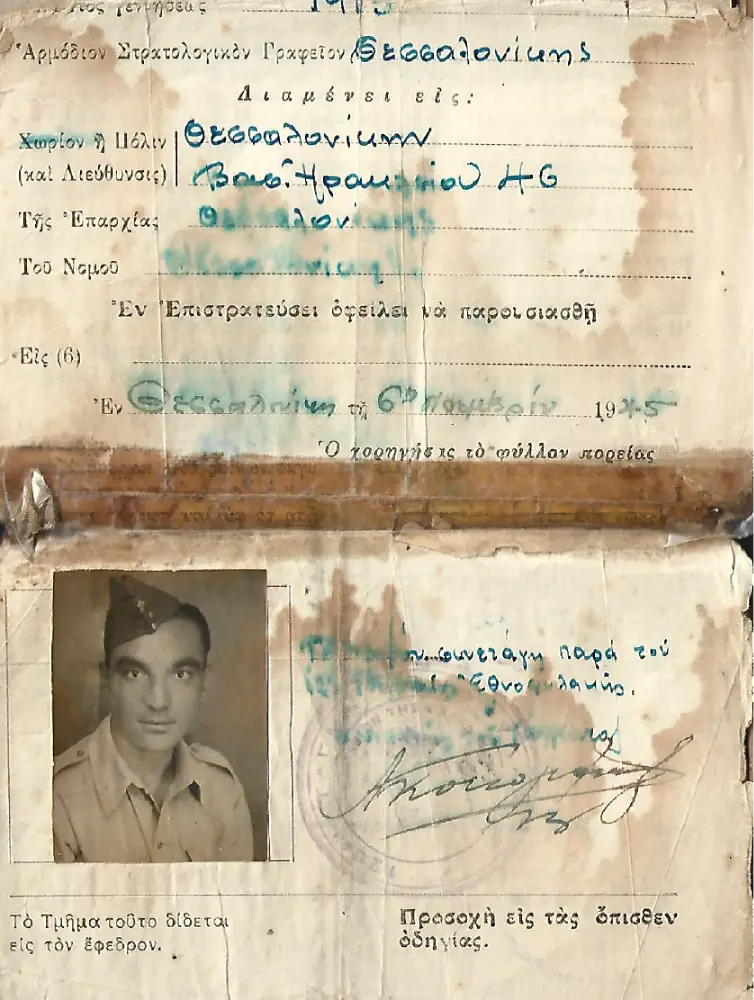 γεννήσεως
Ἁρμόδιον Στρατολογικὸν Γραφεῖον Θεσσαλονίκης
Διαμένει εἰς:
Χωρίον ἢ Πόλιν Θεσσαλονίκην
(καὶ Διεύθυνσις) Βασ. Ηρακλείου 46
Τῆς Ἐπαρχίας Θεσσαλονίκης
Τοῦ Νομοῦ Θεσσαλονίκης.
Ἐν Ἐπιστρατεύσει ὀφείλει νὰ παρουσιασθῇ
Εἰς (6)
Ἐν Θεσσαλονίκη τῇ 6ῃ 1945
Ὁ χορηγήσας τὸ φύλλον πορείας
συνετάγη παρά του
Εθνοφυλακής.
Τὸ Τμῆμα τοῦτο δίδεται
εἰς τὸν ἔφεδρον.
Προσοχὴ εἰς τὰς ὄπισθεν
ὁδηγίας.